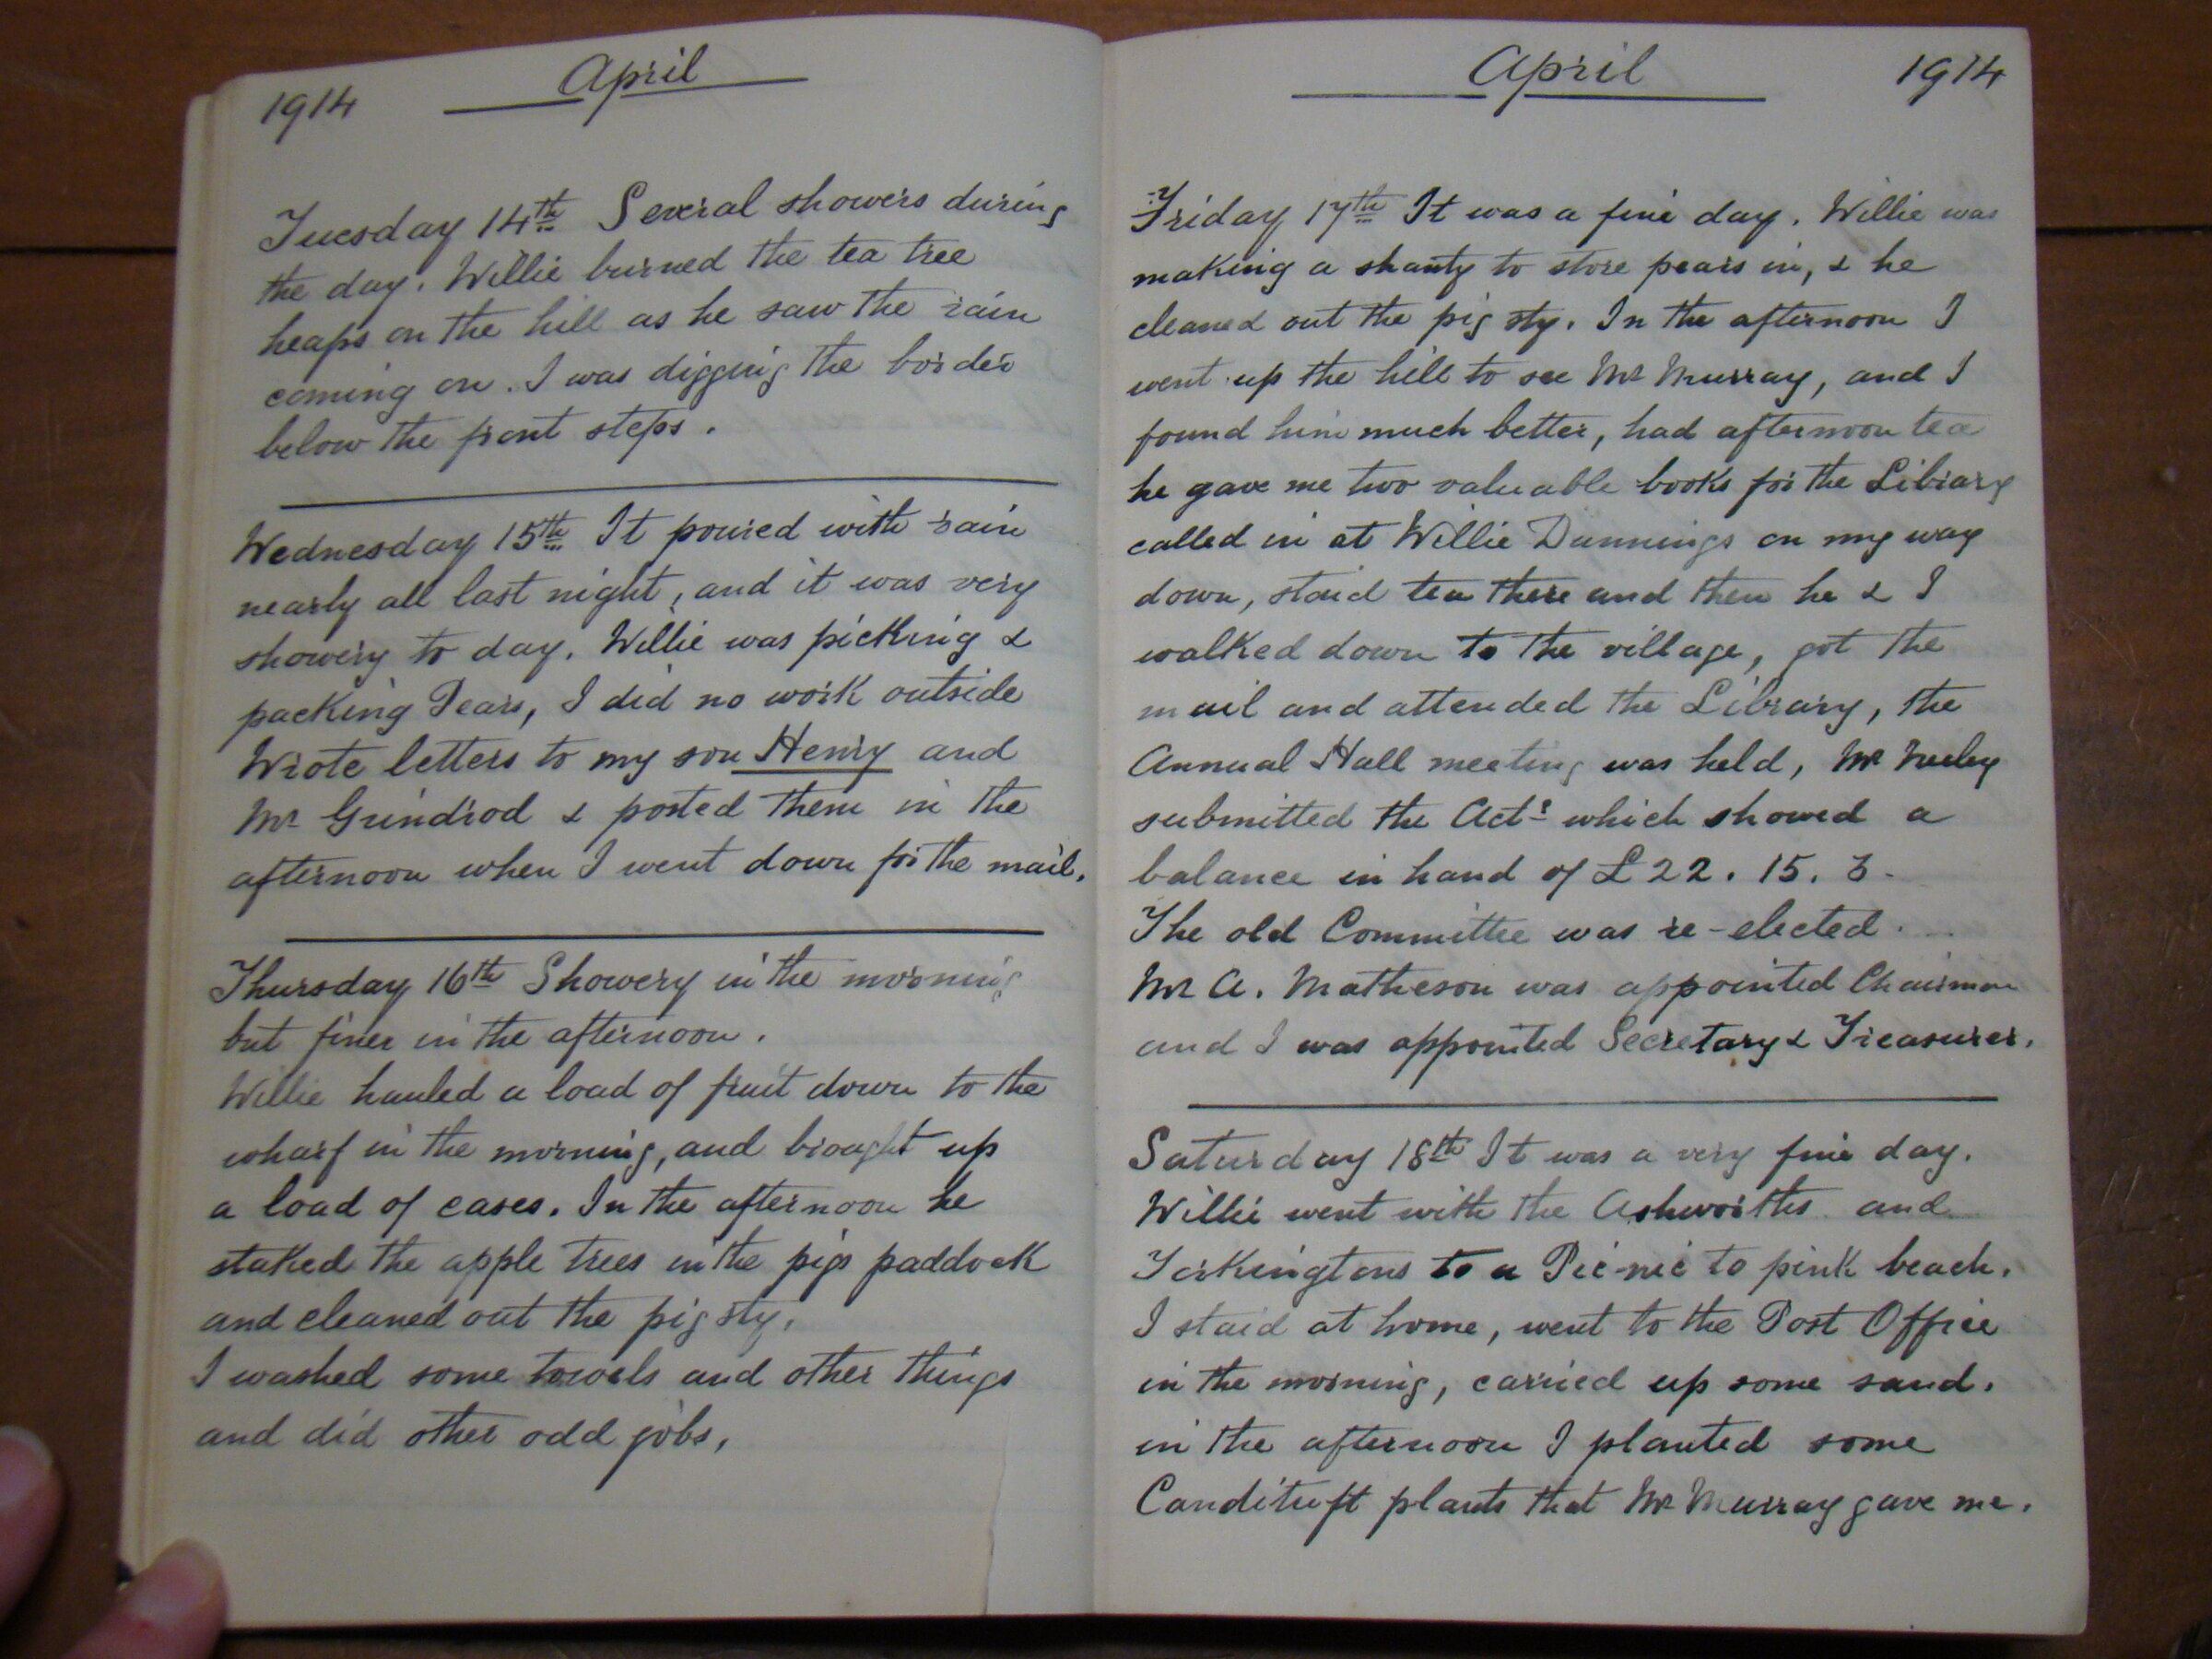 1914 April
Tuesday 14th Several showers during
the day. Willie burned the tea tree
heaps on the hill as he saw the rain
coming on. I was digging the border
below the front steps.
Wednesday 15th It poured with rain
nearly all last night, and it was very
showery to day. Willie was picking &
packing Pears, I did no work outside
Wrote letters to my son Henry and
Mr Grindrod & posted them in the
afternoon when I went down for the mail.
Thursday 16th Showery in the morning
but finer in the afternoon.
Willie hauled a load of fruit down to the
wharf in the morning, and brought up
a load of cases. In the afternoon he
staked the apple trees in the pigs paddock
and cleaned out the pig sty.
I washed some towels and other things
and did other odd jobs,
April 1914
Friday 17th It was a fine day. Willie was
making a shanty to store pears in, & he
cleaned out the pig sty. In the afternoon I
went up the hill to see Mr Murray, and I
found him much better, had afternoon tea
he gave me two valuable books for the Library
called in at Willie Dunnings on my way
down, staid tea there and then he & I
walked down to the village, got the
mail and attended the Library, the
Annual Hall meeting was held, Mr
submitted the Acts which showed a
balance in hand of £22. 15. 3.
The old Committee was re-elected.
Mr A. Matheson was appointed Chairman
and I was appointed Secretary & Treasurer.
Saturday 18th It was a very fine day.
Willie went with the Ashworths and
Torkingtons to a Pic-nic to pink beach.
I staid at home, went to the Post Office
in the morning, carried up some sand.
in the afternoon I planted some
Canditufft plants that Mr Murray gave me.